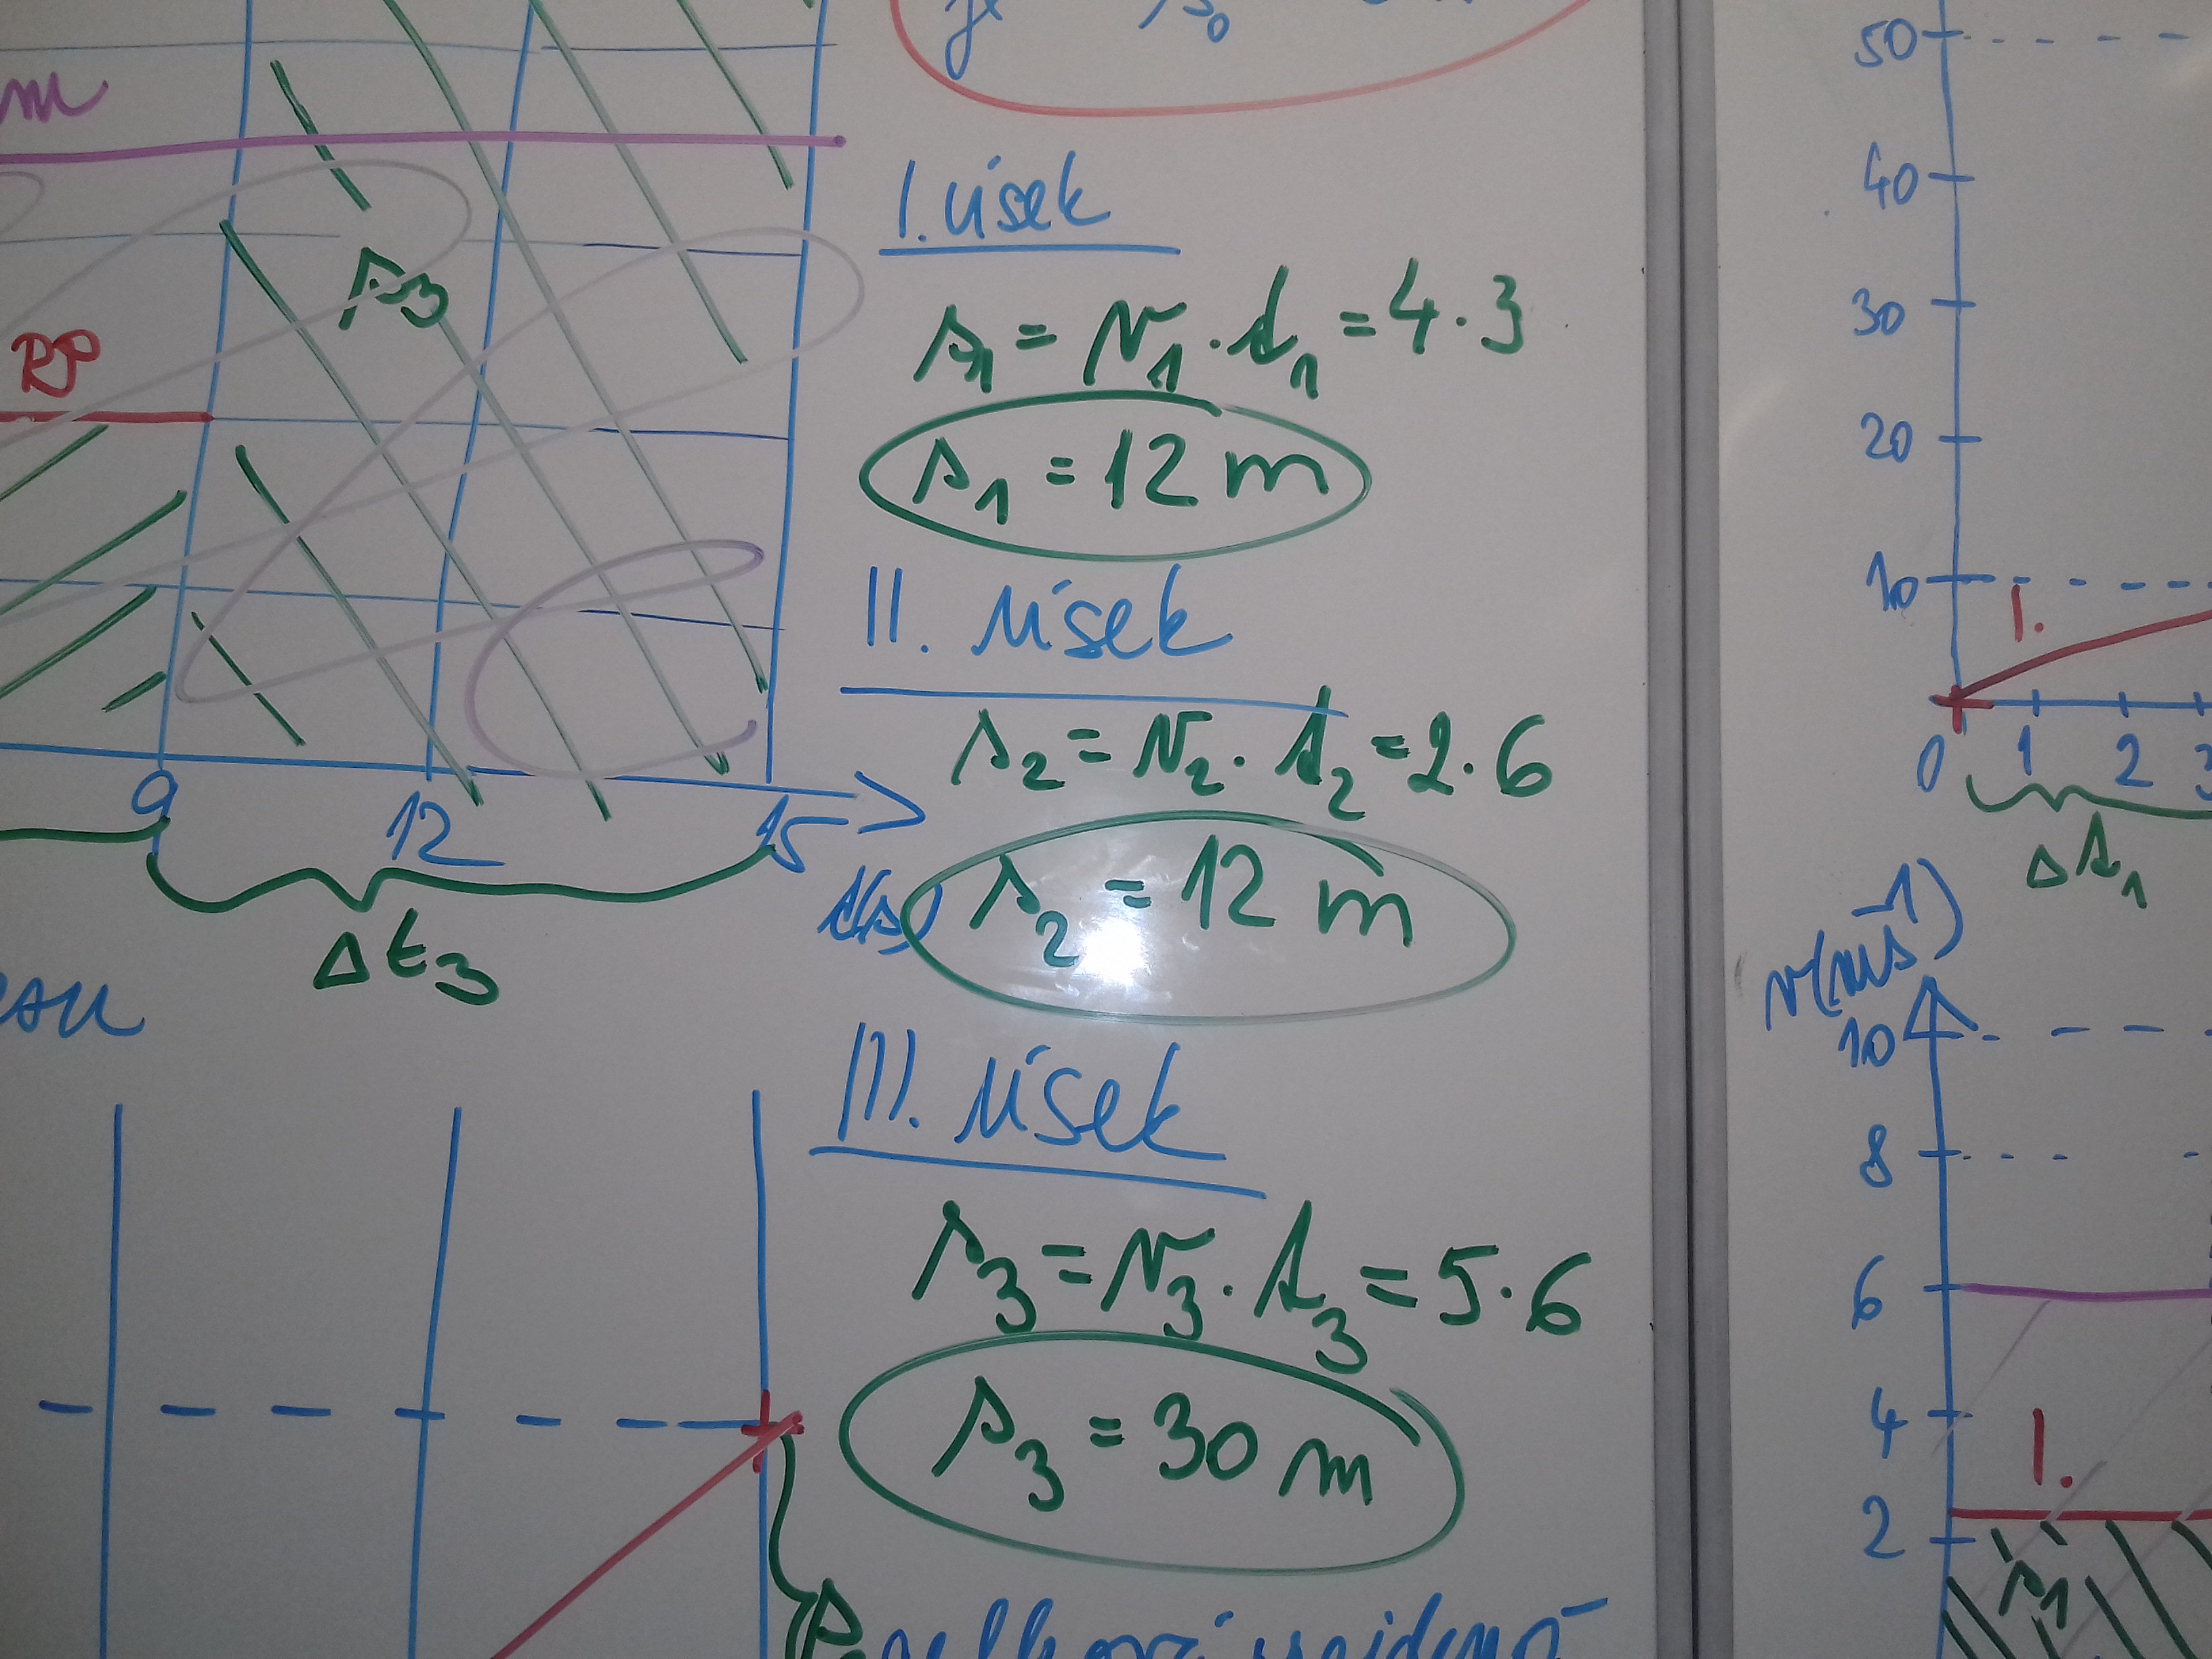 m
RP
s₃
9 12 15
t(s)
Δt₃
I. úsek
s₁ = v₁ · t₁ = 4 · 3
s₁ = 12 m
II. úsek
s₂ = v₂ · t₂ = 2 · 6
s₂ = 12 m
III. úsek
s₃ = v₃ · t₃ = 5 · 6
s₃ = 30 m
50
40
30
20
10
I.
0 1 2 3
Δt₁
v(ms⁻¹)
10
8
6
4
I.
2
s₁